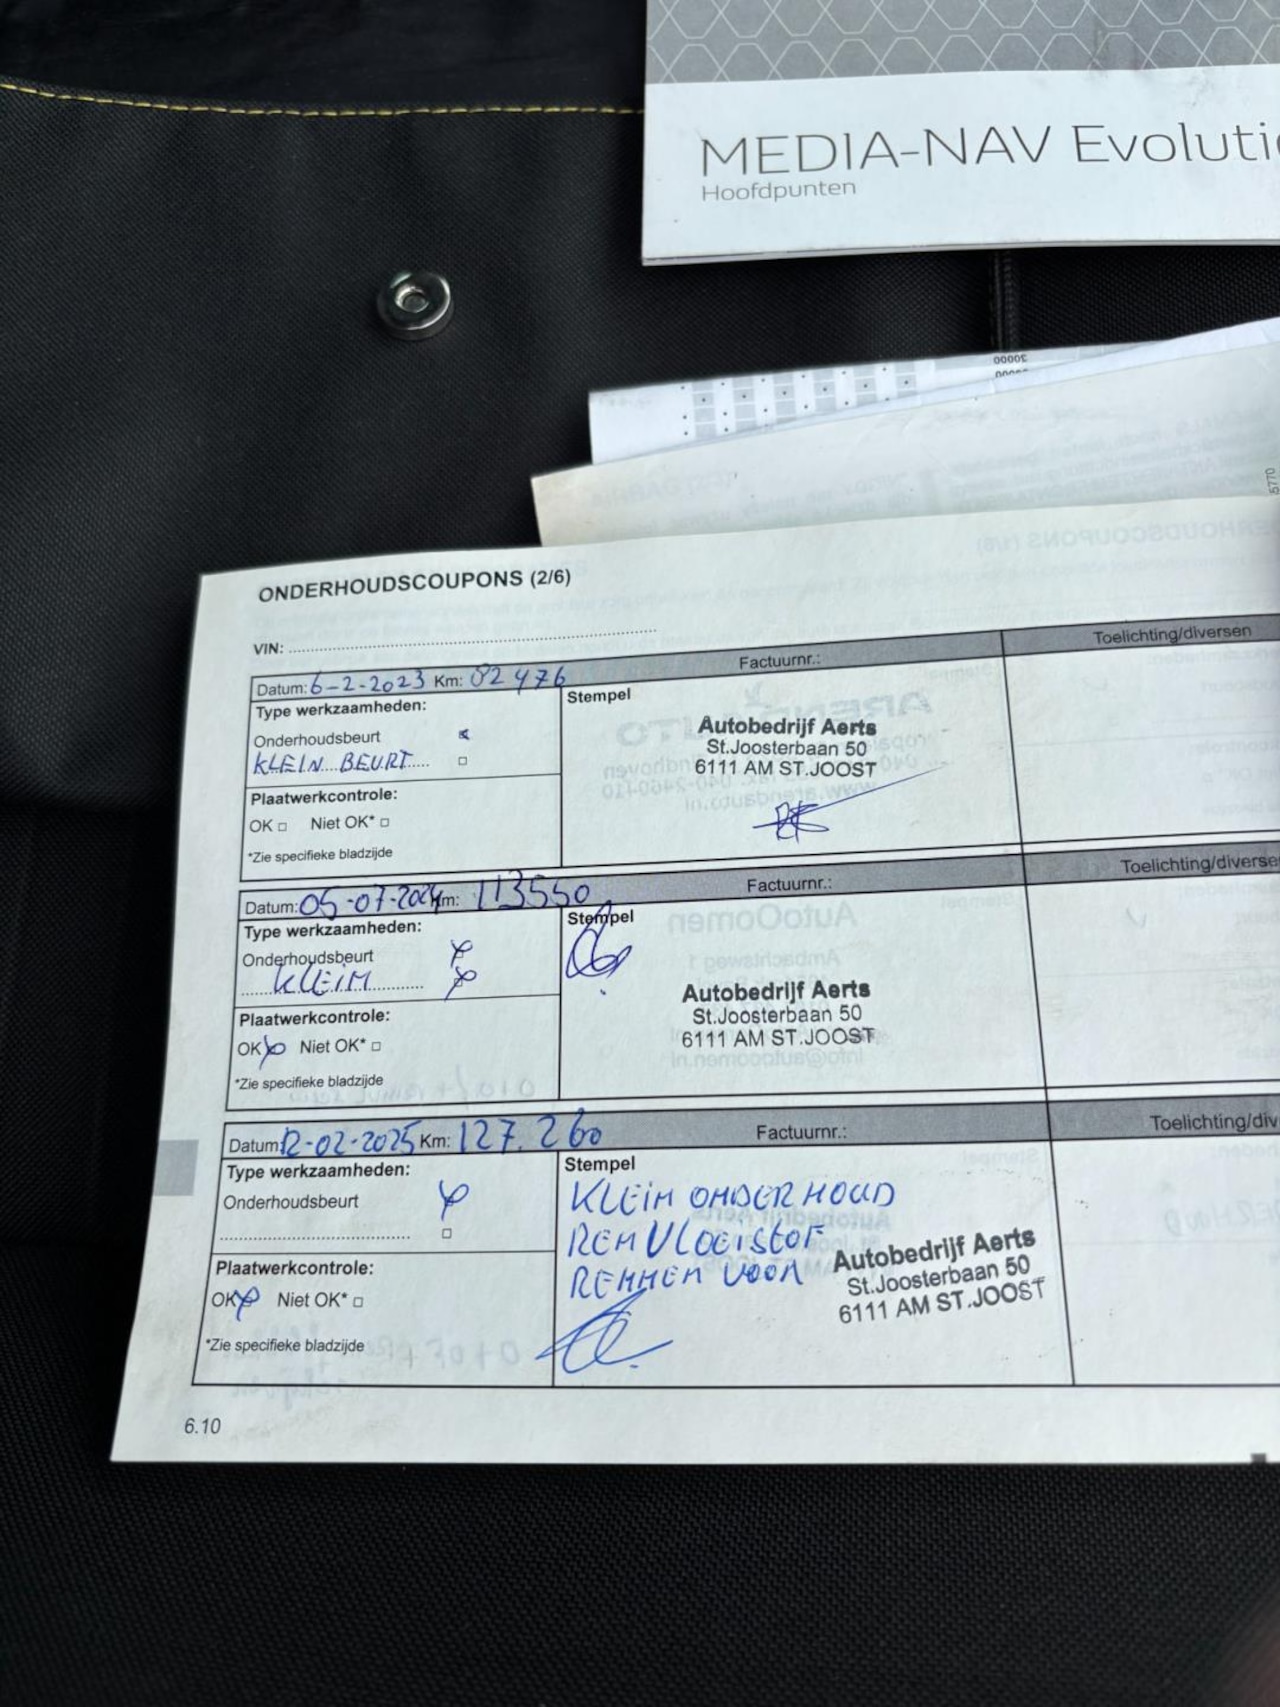 MEDIA-NAV Evoluti
Hoofdpunten
00002
5770
ONDERHOUDSCOUPONS (2/6)
VIN:
Datum: 6-2-2023 Km: 82 476 Factuurnr.: Toelichting/diversen
Type werkzaamheden:
Onderhoudsbeurt
KLEIN BEURT
Plaatwerkcontrole:
OK Niet OK*
*Zie specifieke bladzijde
Stempel
Autobedrijf Aerts
St.Joosterbaan 50
6111 AM ST.JOOST
Datum: 05-07-2024 Km: 113550 Factuurnr.: Toelichting/diverse
Type werkzaamheden:
Onderhoudsbeurt
KLEIM
Plaatwerkcontrole:
OK Niet OK*
*Zie specifieke bladzijde
Stempel
Autobedrijf Aerts
St.Joosterbaan 50
6111 AM ST.JOOST
Datum: 12-02-2025 Km: 127.260 Factuurnr.: Toelichting/div
Type werkzaamheden:
Onderhoudsbeurt
Plaatwerkcontrole:
OK Niet OK*
*Zie specifieke bladzijde
Stempel
KLEIM ONDERHOUD
REMVLOEISTOF
REMMEN VOOR
Autobedrijf Aerts
St.Joosterbaan 50
6111 AM ST.JOOST
6.10